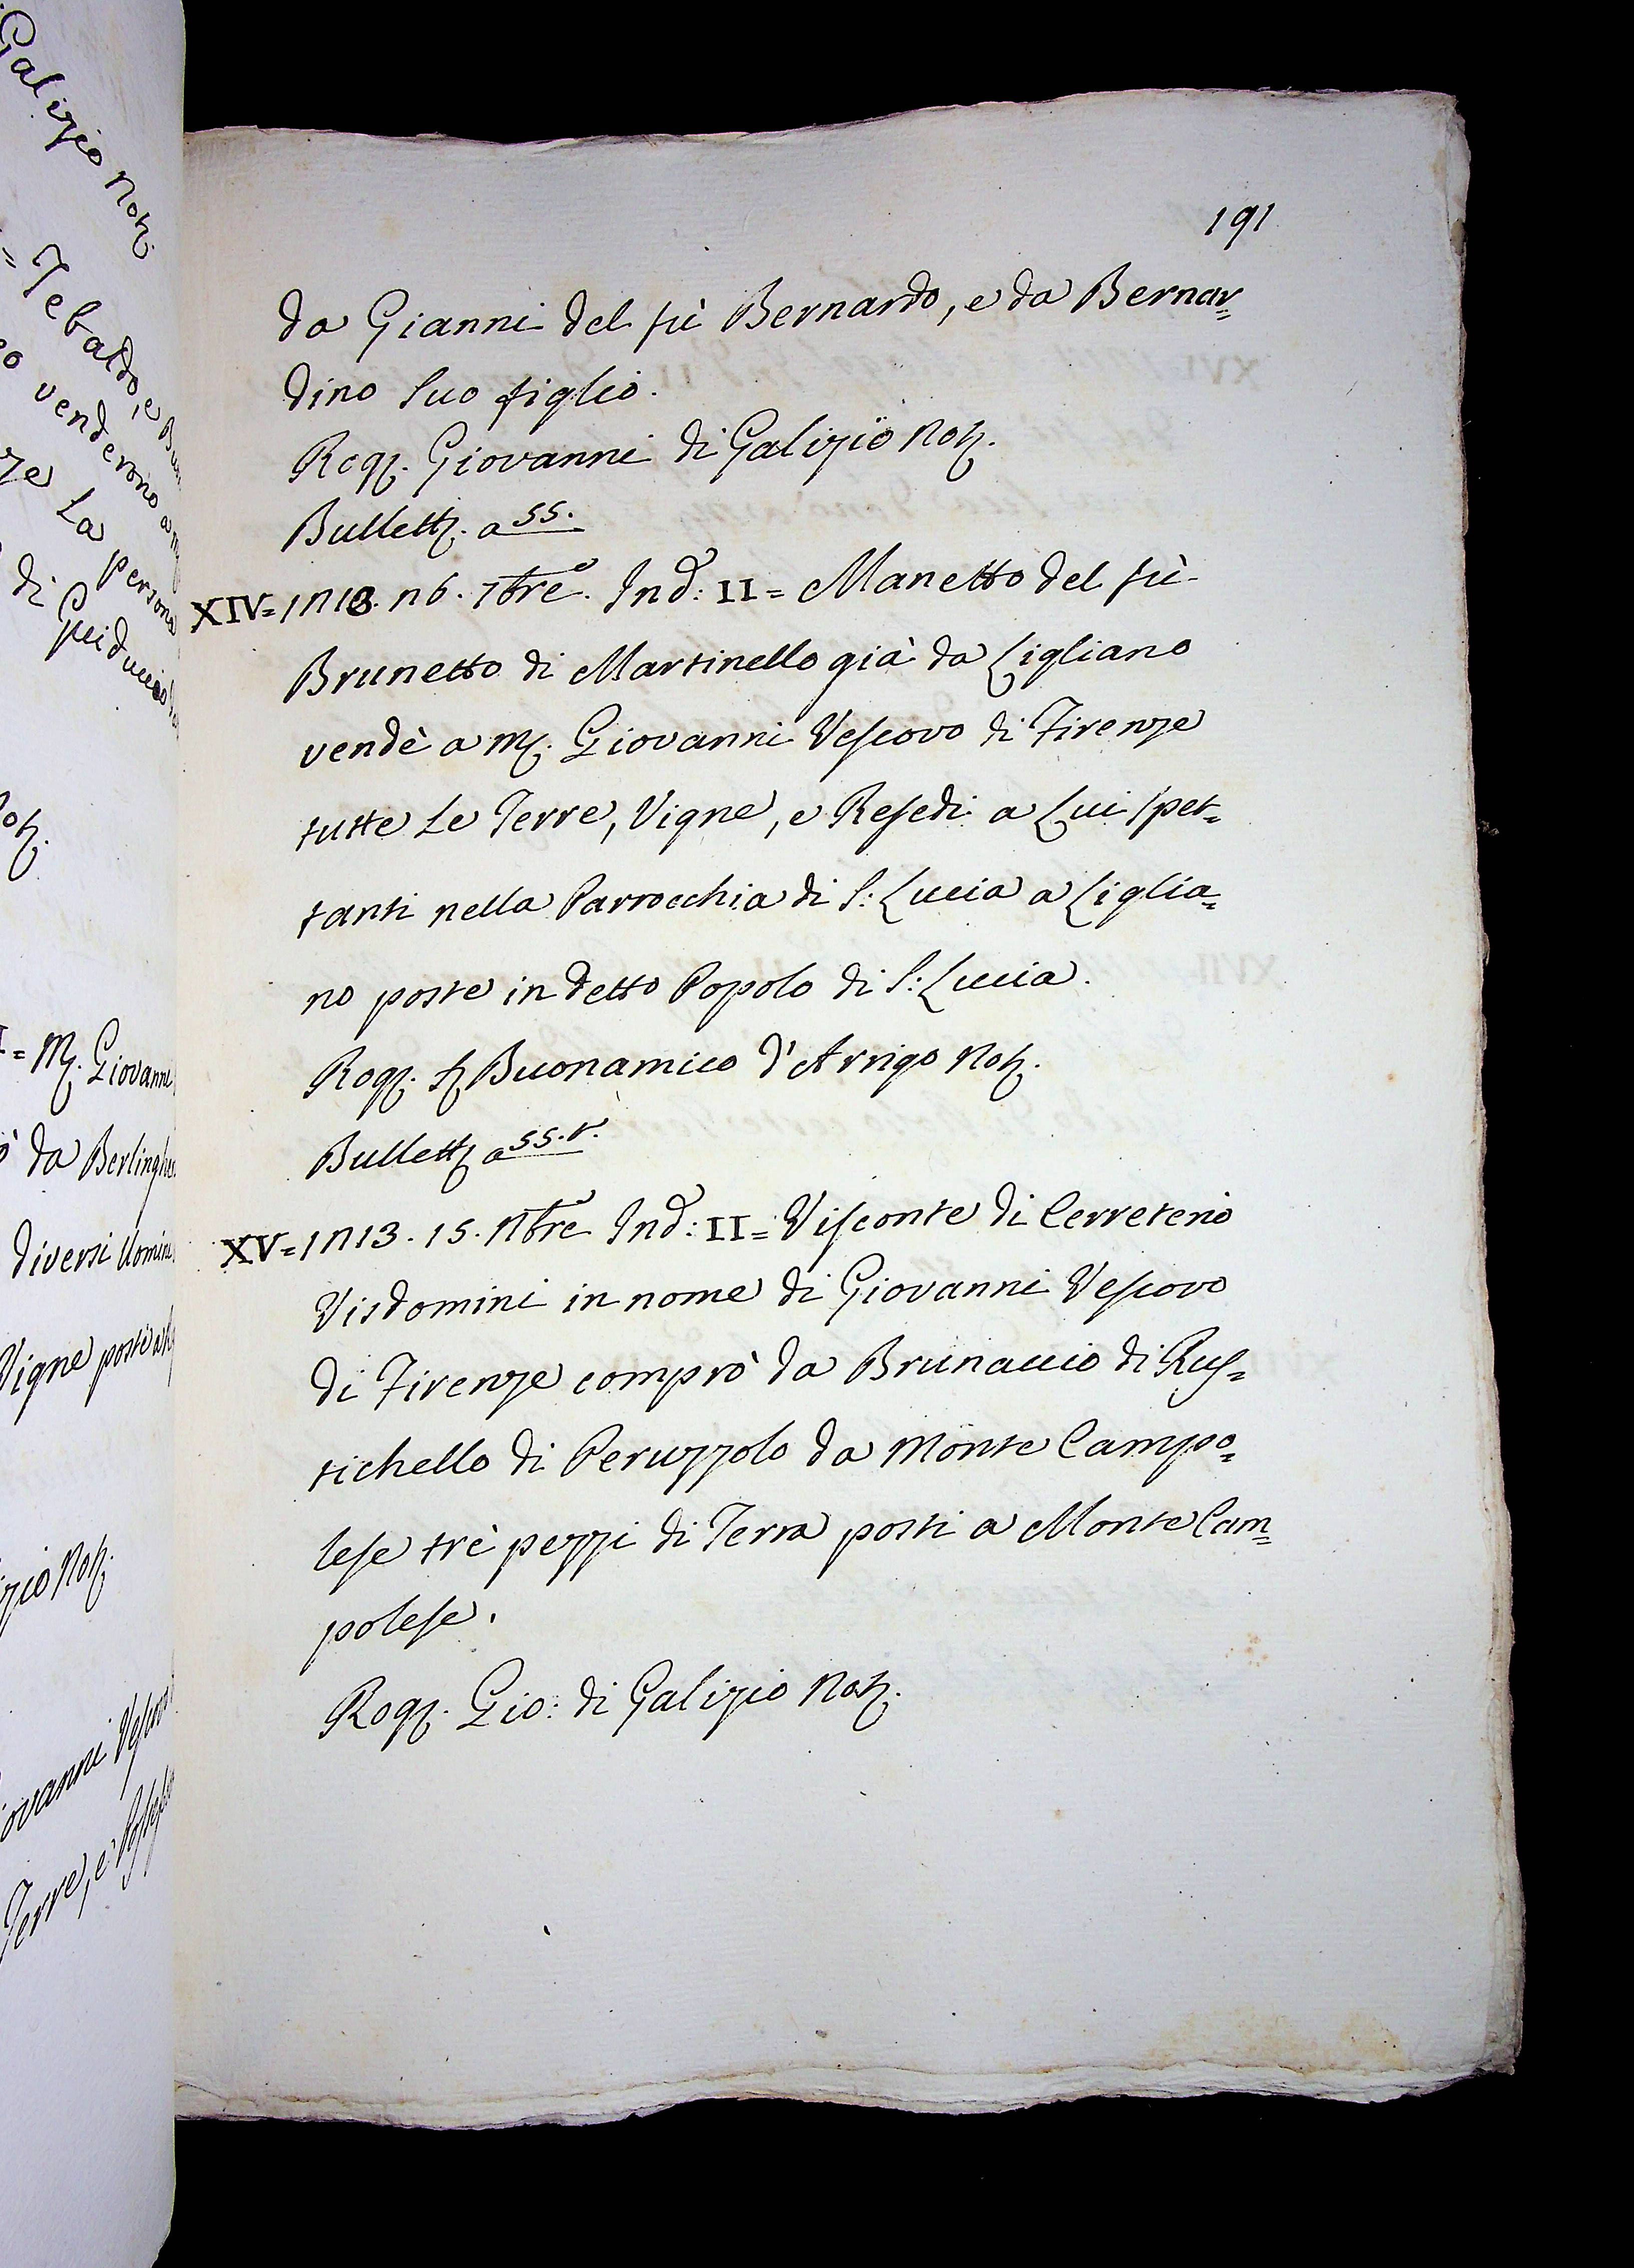 Galizio Noţ
= Tebaldo, e
venderono a
ze La persona
di Guiduccio
Noţ.
= M. Giovanni
da Berlinghie
diversi Uomini
Vigne poste a
zio Noţ.
iovanni Vescovo
Terre, e
191
da Gianni del fù Bernardo, e da Bernar=
dino Suo figlio.
Rog. Giovanni di Galizio Noţ.
Bullett. a 55.
XIV= 1213. 26. 7bre. Ind: II= Manetto del fù
Brunetto di Martinello già da Cigliano
vendè a M. Giovanni Vescovo di Firenze
tutte Le Terre, Vigne, e Resedi a Lui spet=
tanti nella Parrocchia di S: Lucia a Ciglia=
no poste in detto Popolo di S: Lucia.
Rog. Buonamico d'Arrigo Noţ.
Bullett a 55. t.
XV= 1213. 15. Nbre Ind: II= Visconte di Cerreterio
Visdomini in nome di Giovanni Vescovo
di Firenze comprò da Brunaccio di Rus=
tichello di Peruzzolo da Monte Campo=
lese trè pezzi di Terra posti a Monte Cam=
polese.
Rog. Gio: di Galizio Noţ.